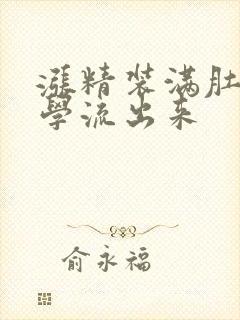 漲精装满肚
學流出来
俞永福